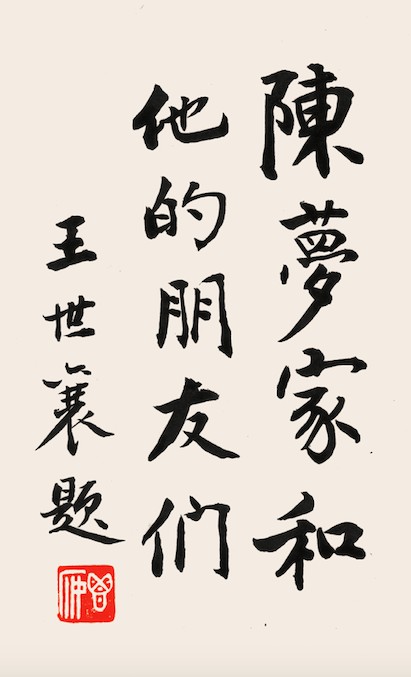 陳夢家和
他的朋友们
王世襄题